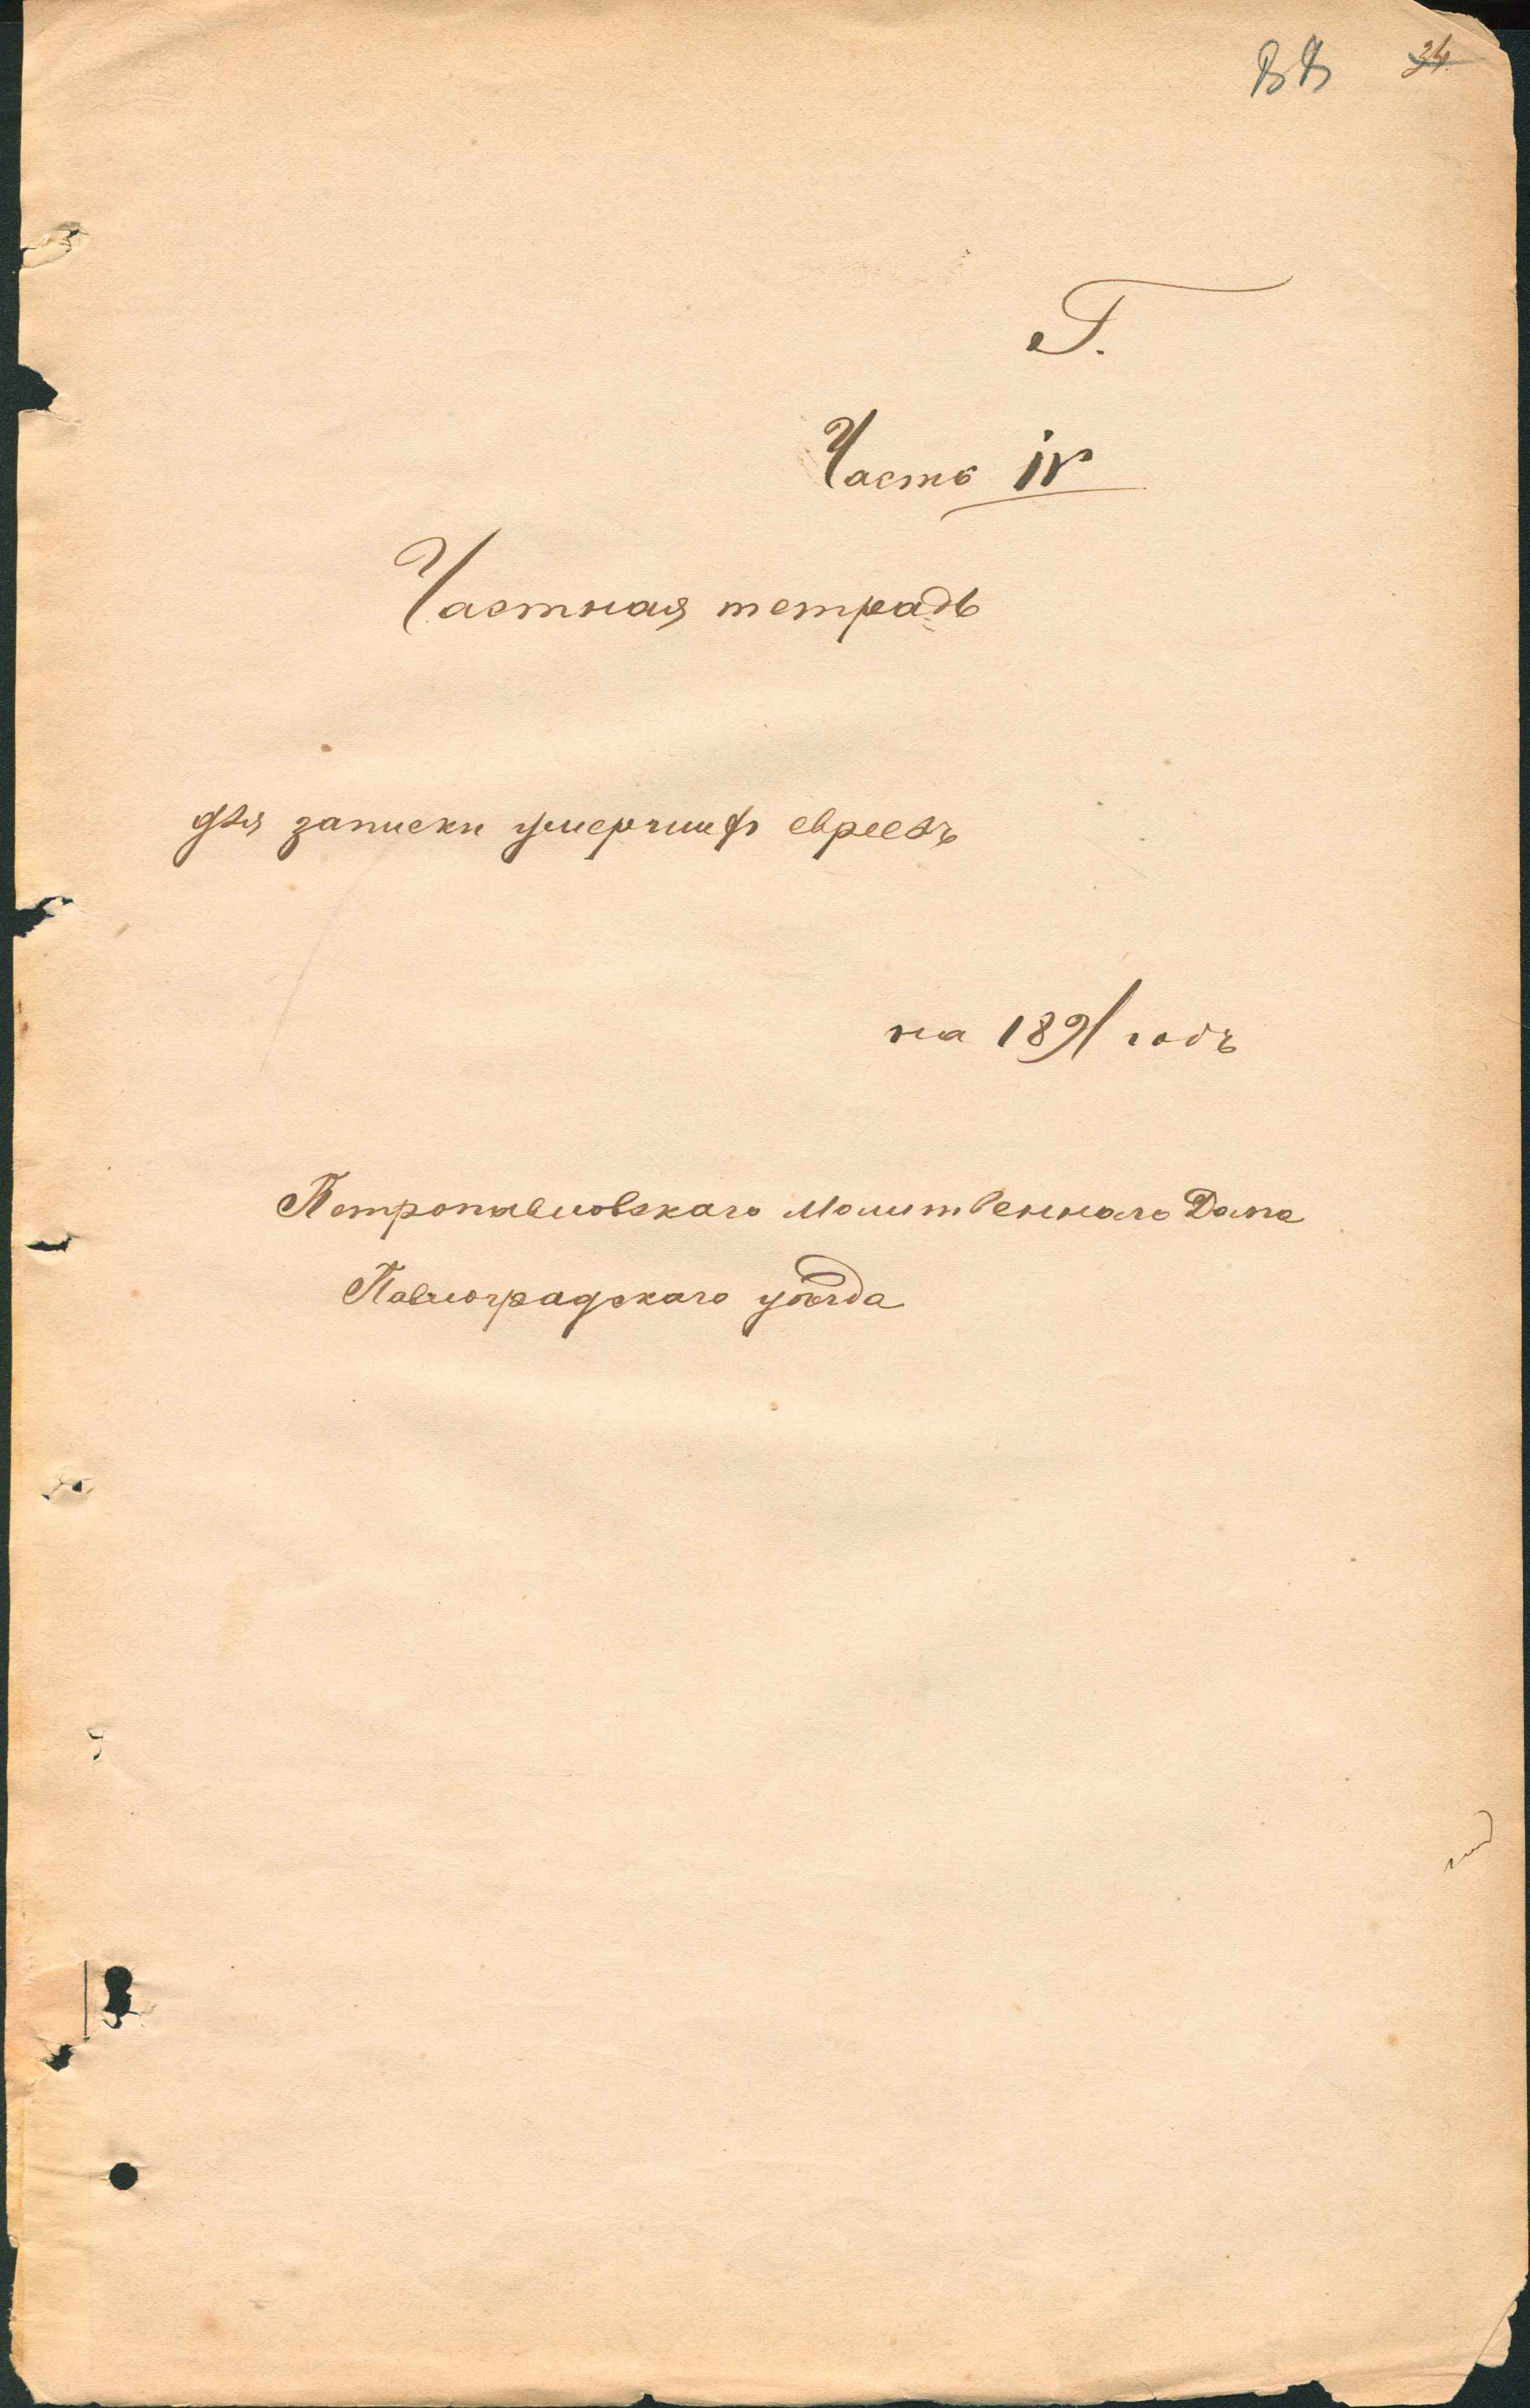 34
Г.
Часть IV
Частная тетрадь
для записки умерших евреевъ
на 1891 годъ
Петропавловскаго Молитвеннаго Дома
Павлоградскаго уѣзда